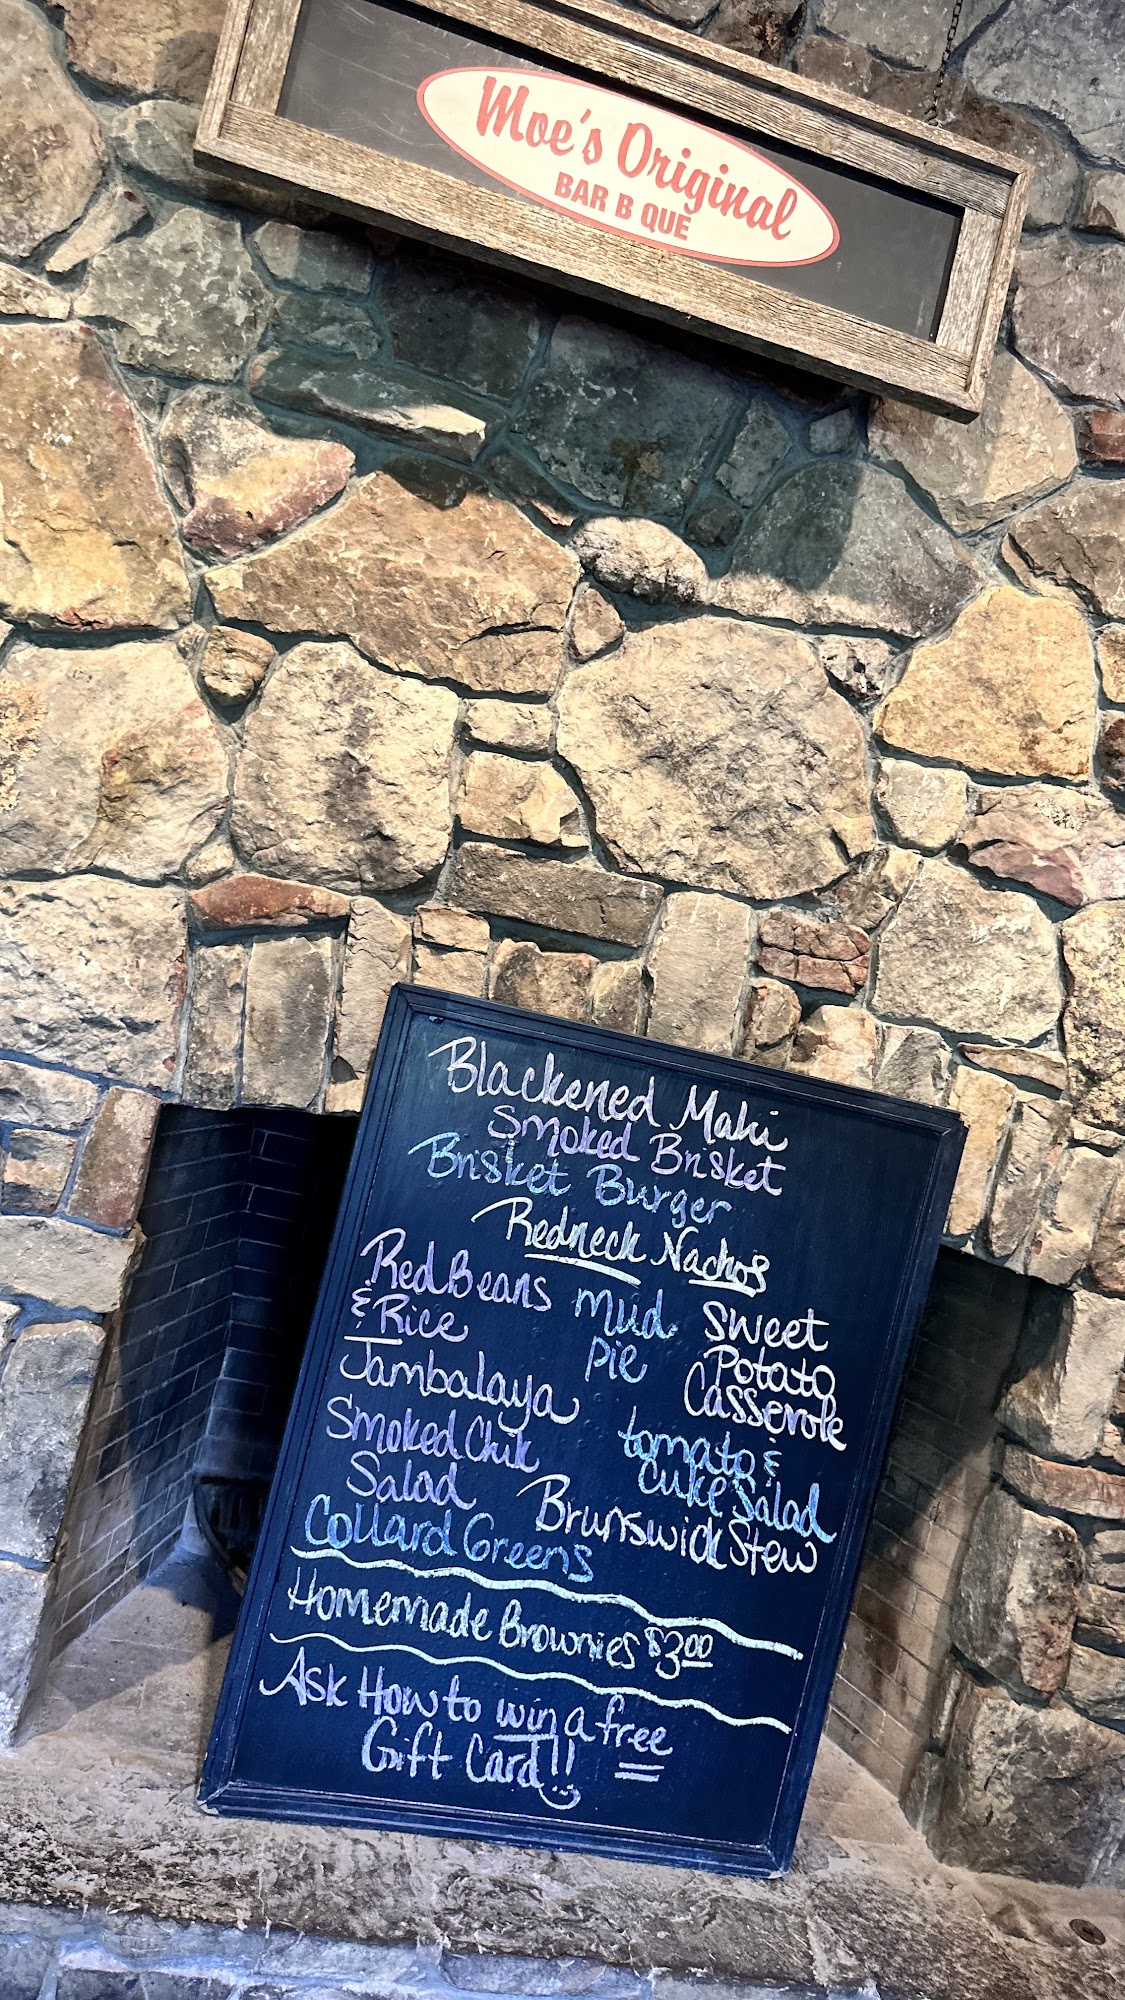 Moe's Original
BAR B QUE
Blackened Mahi
Smoked Brisket
Brisket Burger
Redneck Nachos
Red Beans
& Rice
Jambalaya
Smoked Chik
Salad
Collard Greens
Mud
Pie
Sweet
Potato
Casserole
tomato &
Cuke Salad
Brunswick Stew
Homemade Brownies $3.00
Ask How to win a free
Gift Card!!